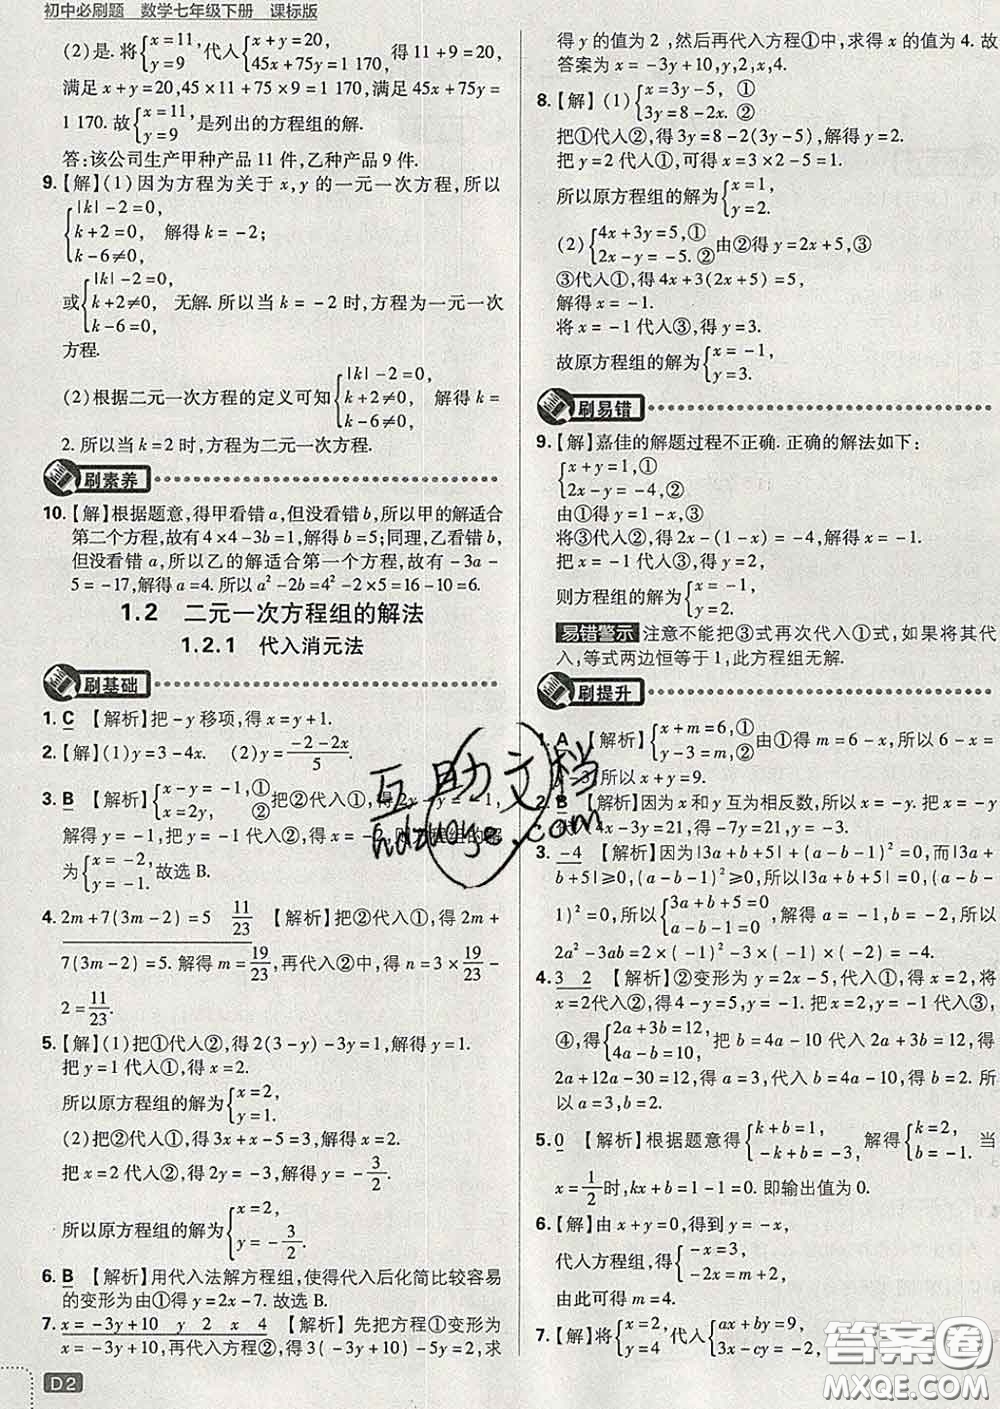 初中必刷题 数学七年级下册 课标版
(2)是. 将{x=11, y=9 代入{x+y=20, 45x+75y=1 170, 得11+9=20,
满足 x+y=20,45×11+75×9=1 170 满足 45x+75y=
1 170. 故{x=11, y=9 是列出的方程组的解.
答:该公司生产甲种产品 11 件,乙种产品 9 件.
9.【解】(1)因为方程为关于 x,y 的一元一次方程,所以
{|k|-2=0, k+2=0, k-6≠0, 解得 k=-2;
或{|k|-2=0, k+2≠0, k-6=0, 无解. 所以当 k=-2 时,方程为一元一次
方程.
(2)根据二元一次方程的定义可知{|k|-2=0, k+2≠0, k-6≠0, 解得 k=
2. 所以当 k=2 时,方程为二元一次方程.
刷素养
10.【解】根据题意,得甲看错 a,但没看错 b,所以甲的解适合
第二个方程,故有 4×4-3b=1,解得 b=5;同理,乙看错 b,
但没看错 a,所以乙的解适合第一个方程,故有 -3a-
5=-17,解得 a=4. 所以 a²-2b=4²-2×5=16-10=6.
1.2 二元一次方程组的解法
1.2.1 代入消元法
刷基础
1. C 【解析】把 -y 移项,得 x=y+1.
2.【解】(1)y=3-4x. (2)y=(-2-2x)/5.
3. B 【解析】{x-y=-1,① x=2y, ② 把②代入①,得 2y-y=-1,
解得 y=-1,把 y=-1 代入②,得 x=-2,则方程组的解
为{x=-2, y=-1, 故选 B.
4. 2m+7(3m-2)=5 11/23 【解析】把②代入①,得 2m+
7(3m-2)=5. 解得 m=19/23,再代入②中,得 n=3×19/23-
2=11/23.
5.【解】(1)把①代入②,得 2(3-y)-3y=1,解得 y=1.
把 y=1 代入①,得 x=2.
所以原方程组的解为{x=2, y=1.
(2)把②代入①,得 3x+x-5=3,解得 x=2.
把 x=2 代入②,得 2-2y=5,解得 y=-3/2.
所以原方程组的解为{x=2, y=-3/2.
6. B 【解析】用代入法解方程组,使得代入后化简比较容易
的变形为由①得 y=2x-7. 故选 B.
7. x=-3y+10 y 2 x 4 【解析】先把方程①变形为
x=-3y+10,再代入方程②,得 3(-3y+10)-5y=2,求
D2
得 y 的值为 2 ,然后再代入方程①中,求得 x 的值为 4. 故
答案为 x=-3y+10,y,2,x,4.
8.【解】(1){x=3y-5, ① 3y=8-2x. ②
把①代入②,得 3y=8-2(3y-5),解得 y=2.
把 y=2 代入①,可得 x=3×2-5=1.
所以原方程组的解为{x=1, y=2.
(2){4x+3y=5,① 2x-y=-5. ② 由②得 y=2x+5,③
③代入①,得 4x+3(2x+5)=5,
解得 x=-1.
将 x=-1 代入③,得 y=3.
故原方程组的解为{x=-1, y=3.
刷易错
9.【解】嘉佳的解题过程不正确. 正确的解法如下:
{x+y=1,① 2x-y=-4,②
由①得 y=1-x,③
将③代入②,得 2x-(1-x)=-4,解得 x=-1.
把 x=-1 代入③,得 y=2,
则方程组的解为{x=-1, y=2.
易错警示 注意不能把③式再次代入①式,如果将其代
入,等式两边恒等于 1,此方程组无解.
刷提升
1. A 【解析】{x+m=6,① y-3=m,② 由①得 m=6-x,所以 6-x=
y-3,所以 x+y=9.
2. B 【解析】因为 x 和 y 互为相反数,所以 x=-y. 把 x=
代入 4x-3y=21,得 -7y=21,y=-3.
3. -4 【解析】因为|3a+b+5|+(a-b-1)²=0,而|3a+
b+5|≥0,(a-b-1)²≥0,所以|3a+b+5|=0,(a-b-
1)²=0,故{3a+b+5=0 a-b-1=0, 解得 a=-1,b=-2,所以
2a²-3ab=2×(-1)²-3×(-1)×(-2)=-4.
4. 3 2 【解析】②变形为 y=2x-5,代入①,得 x=2,将
x=2代入②,得 4-y=5,y=-1. 把 x=2,y=-1 代入③,
④,得{2a+3b=12, 4a-b=10, 把 b=4a-10 代入2a+3b=12,得
2a+12a-30=12,得 a=3,代入 b=4a-10,得 b=2. 所
以 a=3,b=2.
5. 0 【解析】根据题意得{k+b=1, -k+b=-3, 解得{k=2, b=-1. 当
x=1/2时,kx+b=1-1=0. 即输出值为 0.
6.【解】由 x+y=0,得到 y=-x,
代入方程组,得{-x=3, -2x=m+4,
由此可得 m=-10.
7.【解】将{x=2, y=1 代入{ax+by=9, 3x-cy=-2,
互助文档
hdzuoye.com
答案圈
MXQE.COM